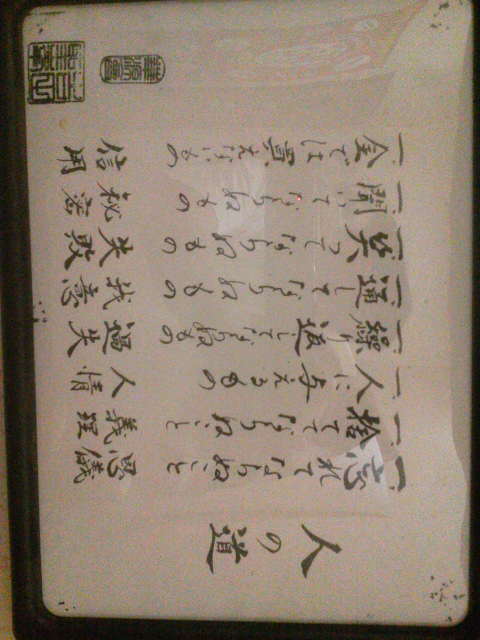 人の道
一、忘れてならぬこと 恩儀
一、捨ててならぬこと 義理
一、人に与えるもの 人情
一、繰り返してならぬもの 過失
一、通してならぬもの 我意
一、笑ってならぬもの 失敗
一、聞いてならぬもの 秘密
一、金では買えないもの 信用